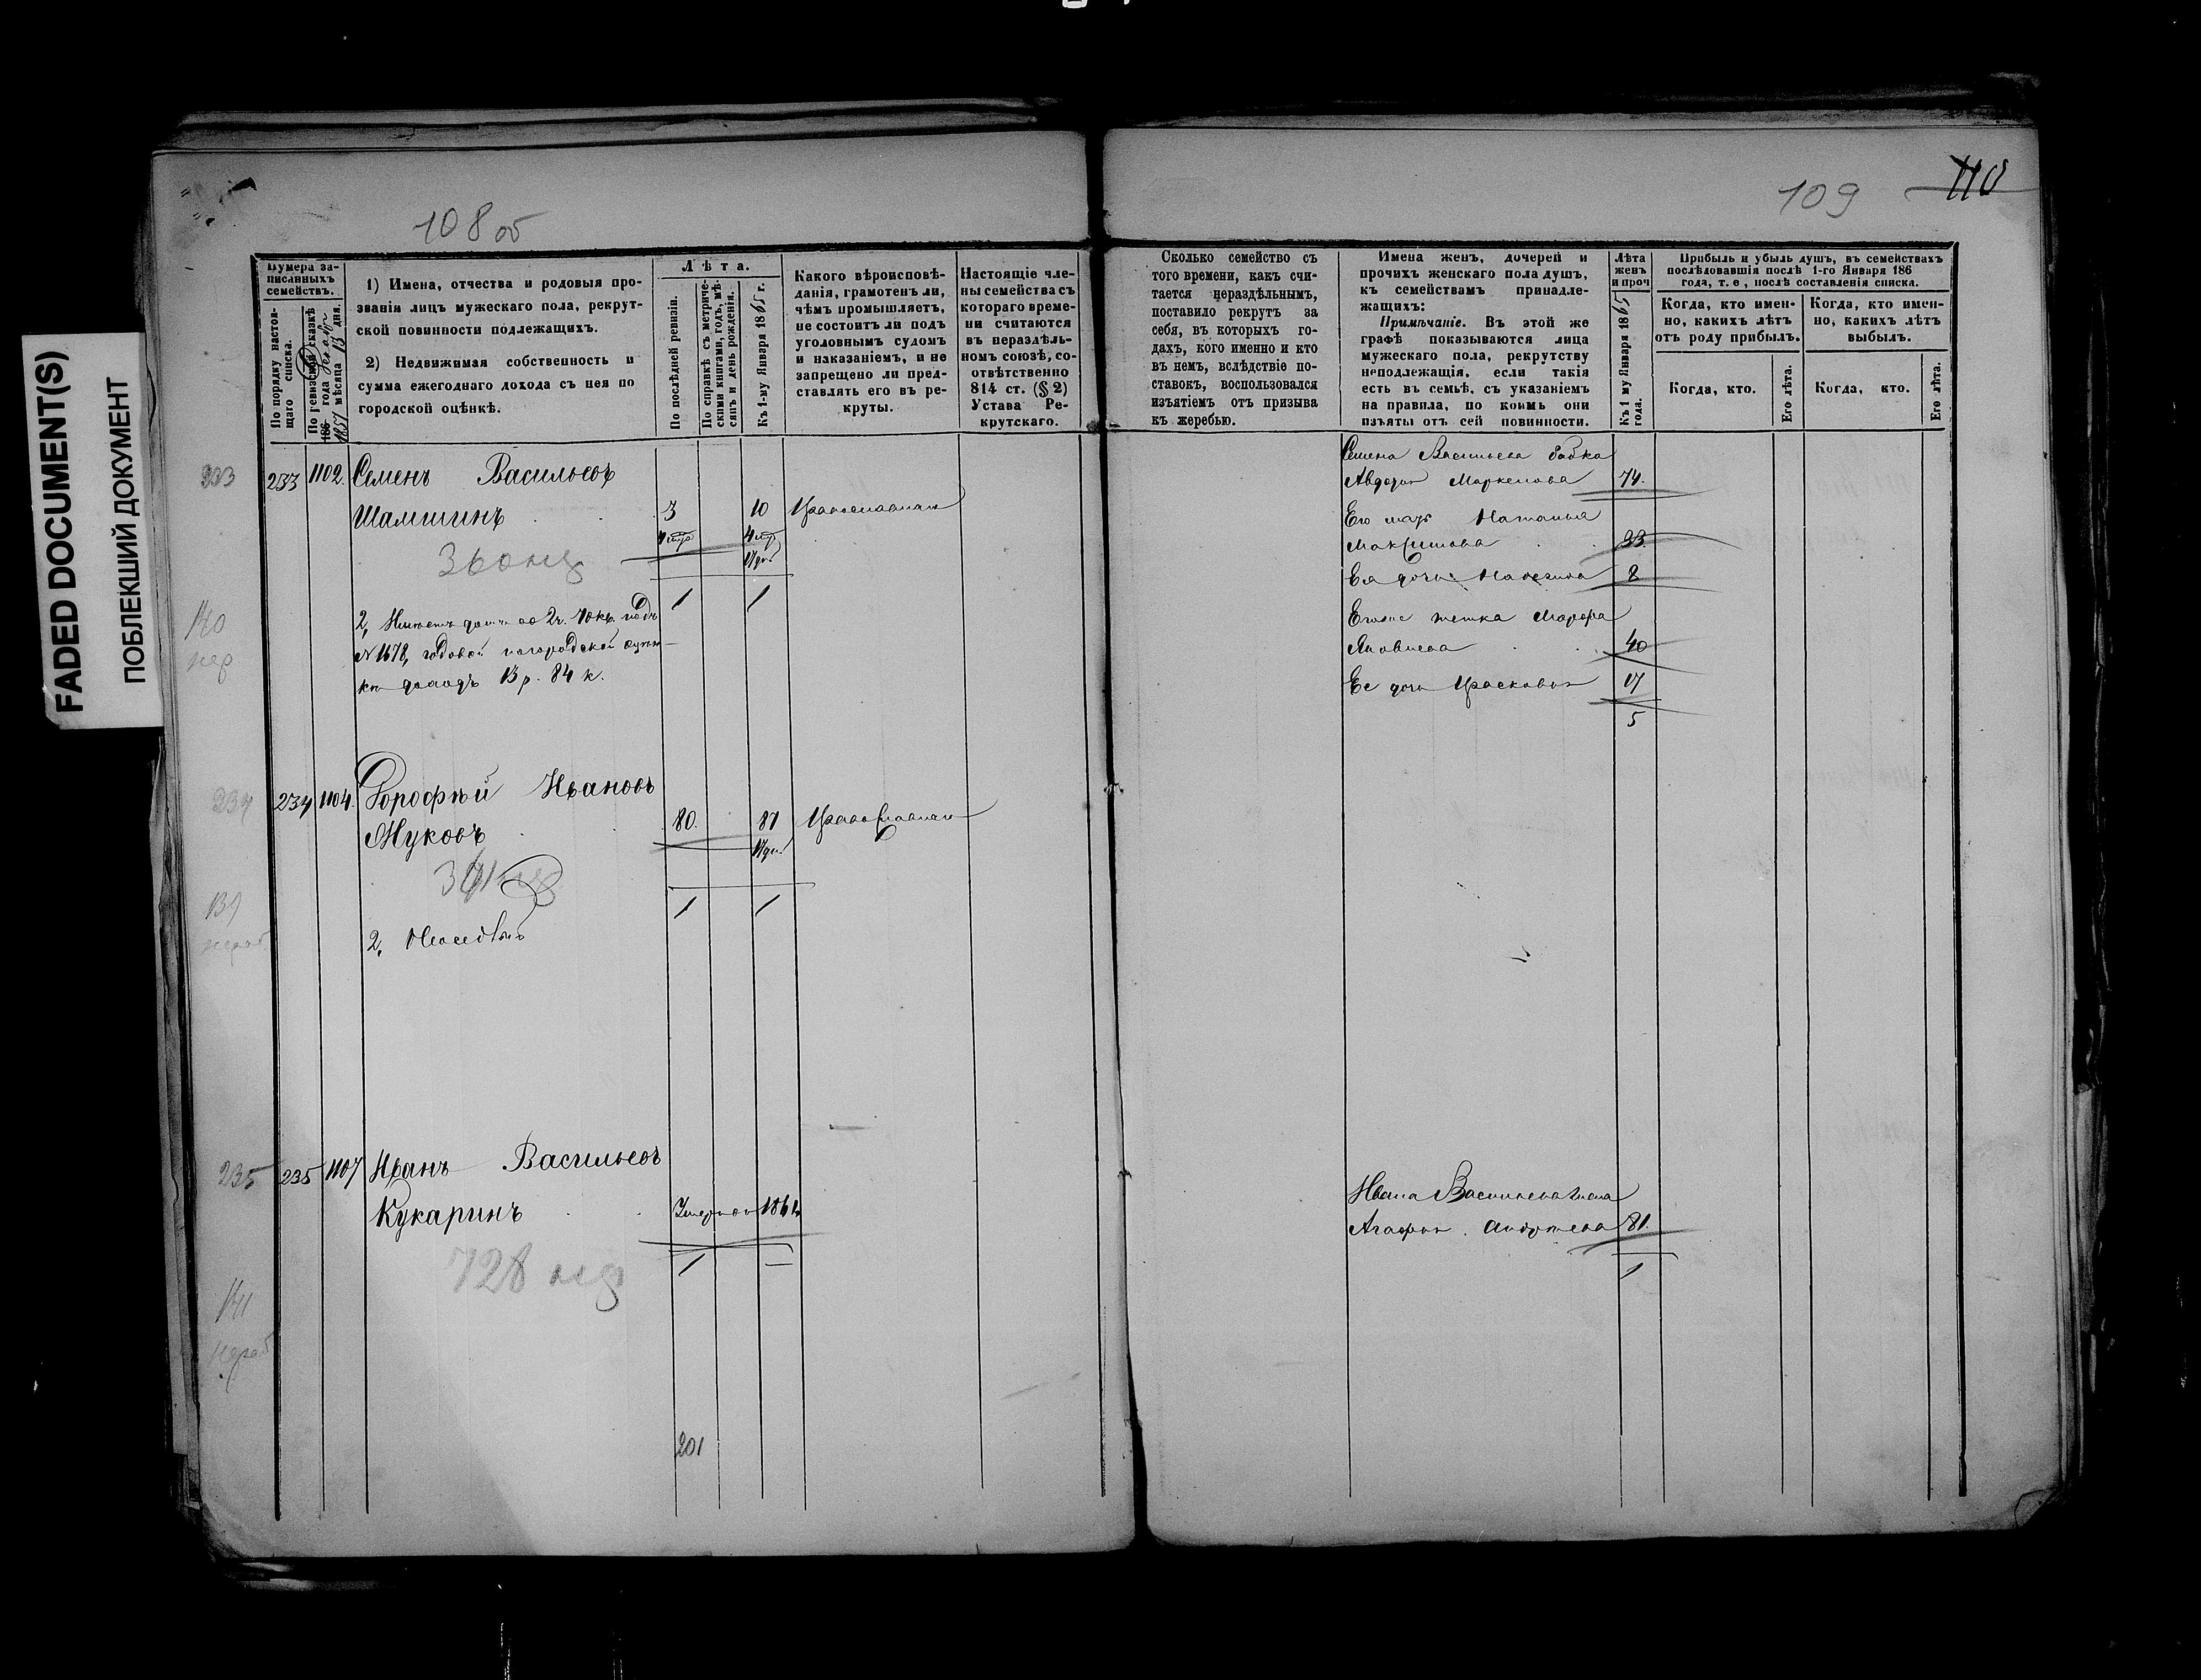 FADED DOCUMENT(S)
ПОБЛЕКШИЙ ДОКУМЕНТ
108 об
Нумера за-
писанныхъ
семействъ.
По порядку настоя-
щаго списка.
По ревизской сказкѣ
186 года
1857 мѣсяца 13 дня.
1) Имена, отчества и родовыя про-
званія лицъ мужескаго пола, рекрут-
ской повинности подлежащихъ.
2) Недвижимая собственность и
сумма ежегоднаго дохода съ нея по
городской оцѣнкѣ.
Лѣта.
По послѣдней ревизіи.
По справкѣ съ метриче-
скими книгами, годъ, мѣ-
сяцъ и день рожденія.
Къ 1-му Января 1865 г.
Какого вѣроисповѣ-
данія, грамотенъ ли,
чѣмъ промышляетъ,
не состоитъ ли подъ
уголовнымъ судомъ
и наказаніемъ, и не
запрещено ли пред-
ставлять его въ ре-
круты.
Настоящіе чле-
ны семейства съ
котораго време-
ни считаются
въ нераздѣль-
номъ союзѣ, со-
отвѣтственно
814 ст. (§ 2)
Устава Ре-
крутскаго.
233 233 1102. Семенъ Васильевъ
Шамшинъ 3 10 Православнаго
1 1
2, Имѣетъ домъ во 2 ч. 70 кв. подъ
№ 1678, годовой по городской оцѣн-
кѣ доходъ 13 р. 84 к.
140
234 234 1104. Дорофѣй Ивановъ
Жуковъ 80. 87 Православнаго
1 1
139
235 235 1107 Иванъ Васильевъ
Кукаринъ Умеръ въ 1864
1 —
141
201
109 110
Сколько семейство съ
того времени, какъ счи-
тается нераздѣльнымъ,
поставило рекрутъ за
себя, въ которыхъ го-
дахъ, кого именно и кто
въ немъ, вслѣдствіе по-
ставокъ, воспользовался
изъятіемъ отъ призыва
къ жеребью.
Имена женъ, дочерей и
прочихъ женскаго пола душъ,
къ семействамъ принадле-
жащихъ:
Примѣчаніе. Въ этой же
графѣ показываются лица
мужескаго пола, рекрутству
неподлежащія, если такія
есть въ семьѣ, съ указаніемъ
на правила, по коимъ они
изъяты отъ сей повинности.
Лѣта
женъ
и проч
Къ 1 му Января 1865
года.
Прибыль и убыль душъ, въ семействахъ
послѣдовавшія послѣ 1-го Января 186
года, т. е, послѣ составленія списка.
Когда, кто имен-
но, какихъ лѣтъ
отъ роду прибылъ.
Когда, кто имен-
но, какихъ лѣтъ
выбылъ.
Когда, кто.
Его лѣта.
Когда, кто.
Его лѣта.
Семена Васильева бабка
Авдотья Маркелова 74.
Его мать Наталья
33.
Ея дочь 8
Его же тетка Марфа
40
Ее дочь Прасковья 17
5
Ивана Васильева жена
Агафья 81.
1